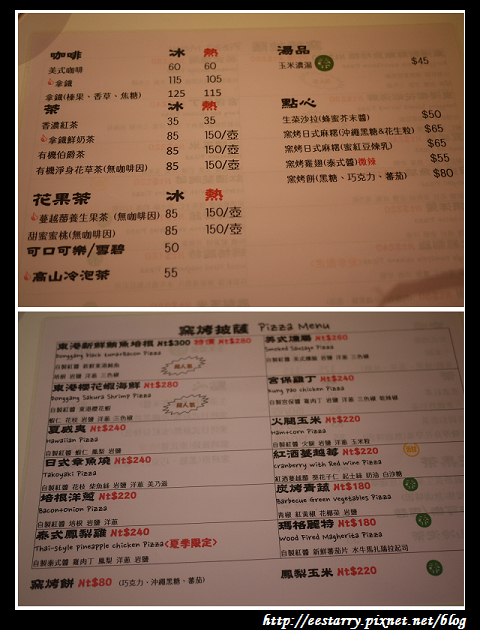 咖啡 冰 熱
美式咖啡 60 60
拿鐵 115 105
拿鐵(榛果、香草、焦糖) 125 115
茶 冰 熱
香濃紅茶 35 35
拿鐵鮮奶茶 85 150/壺
有機伯爵茶 85 150/壺
有機淨身花草茶(無咖啡因) 85 150/壺
花果茶 冰 熱
蔓越莓養生果茶 (無咖啡因) 85 150/壺
甜蜜蜜桃(無咖啡因) 85 150/壺
可口可樂/雪碧 50
高山冷泡茶 55
湯品
玉米濃湯 $45
點心
生菜沙拉(蜂蜜芥末醬) $50
窯烤日式麻糬(沖繩黑糖&花生粒) $65
窯烤日式麻糬(蜜紅豆煉乳) $65
窯烤雞翅(泰式醬)微辣 $55
窯烤餅(黑糖、巧克力、蕃茄) $80
窯烤披薩 Pizza Menu
東港新鮮鮪魚培根 Nt$300 特價 Nt$280
Donggang Black tuna+Bacon Pizza
超人氣
東港櫻花蝦海鮮 Nt$280
Donggang Sakura Shrimp Pizza
自製紅醬 東港櫻花蝦
蝦仁 花枝 岩鹽 洋蔥 三色椒
超人氣
夏威夷 Nt$240
Hawaiian Pizza
自製紅醬 蝦仁 鳳梨 岩鹽
日式章魚燒 Nt$240
Takoyaki Pizza
自製紅醬 花枝 柴魚絲 岩鹽 洋蔥 美乃滋
培根洋蔥 Nt$220
Bacon+onion Pizza
自製紅醬 培根 岩鹽 洋蔥
泰式鳳梨雞 Nt$240
Thai-style Pineapple chicken Pizza<夏季限定>
自製泰式醬 雞肉丁 鳳梨 洋蔥 岩鹽
窯烤餅 Nt$80 (巧克力、沖繩黑糖、蕃茄)
美式燻腸 Nt$260
Smoked Sausage Pizza
宮保雞丁 Nt$240
Kung Pao chicken Pizza
自製宮保醬 雞肉丁 岩鹽 洋蔥 三色椒 乾辣椒
火腿玉米 Nt$220
Ham+corn Pizza
自製紅醬 火腿 岩鹽 洋蔥 玉米粒
紅酒蔓越莓 Nt$220
Cranberry with Red Wine Pizza
紅酒蔓越莓 葵花子仁 起士絲 奶油 白沙糖
炭烤青蔬 Nt$180
Barbecue Green Vegetables Pizza
青椒 紅黃椒 花椰菜 岩鹽
瑪格麗特 Nt$180
Wood Fired Magherita Pizza
自製紅醬 新鮮蕃茄片 水牛馬扎瑞拉起司
鳳梨玉米 Nt$220
http://eestarry.pixnet.net/blog